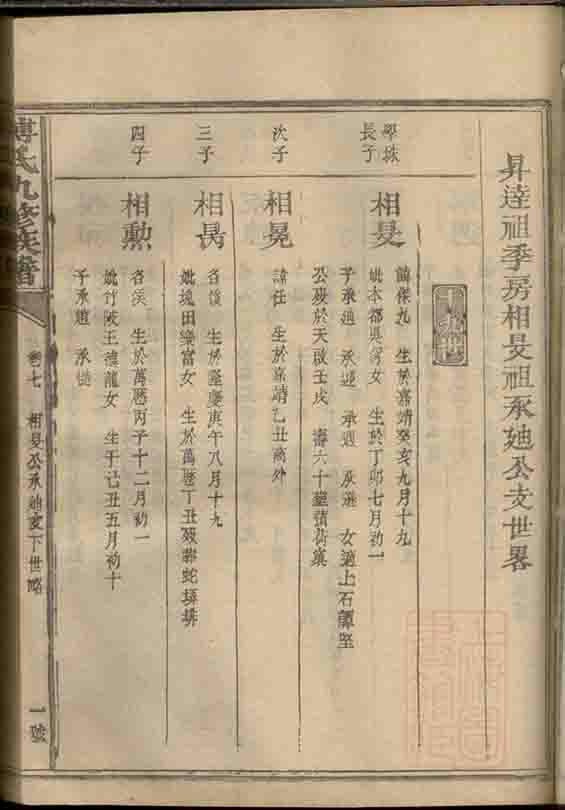 昇逵祖季房相旻祖承迆公支世畧
十九世
學珠長子
相旻
諱傑九 生於嘉靖癸亥九月十九
妣本都吳 女 生於丁卯七月初一
子承迆 承 承遐 承選 女適上石譚堅
公歿於天啟壬戌 壽六十 葬
次子
相晃
諱仕 生於嘉靖乙丑 商外
三子
相昺
名 生於隆慶庚午八月十九
妣瑰田樂富女 生於萬曆丁丑 歿葬蛇
四子
相勲
名溪 生於萬曆丙子十二月初一
妣竹陂王 龍女 生于己丑五月初十
子承 承
傅氏九修族譜
卷七 相旻公承迆支下世略
一號